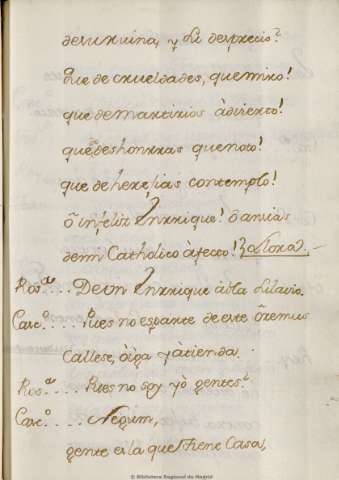 de su ruina, y di desprecio?
Que de crueldades, que miro!
que de martirios àdvierto!
que deshonrras que noto!
que de herejias contemplo!
ô infeliz Ynrrique! ô ansias
de mi Catholico àfecto! Llora
Ros.ª.... De un Ynrrique àbla
Carc.º.... Pues no espante de este
Callese, òiga y àtienda.
Ros.ª.... Pues no soy yò
Carc.º....
gente es la que tiene Casas,
© Biblioteca Regional de Madrid